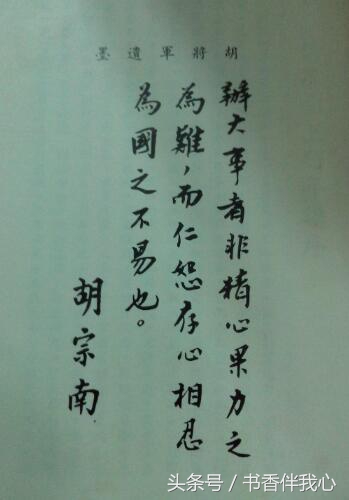 胡將軍遺墨
辦大事者非精心果力之
為難，而仁恕存心相忍
為國之不易也。
胡宗南
头条号 / 书香伴我心